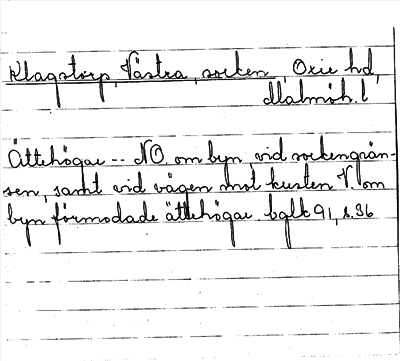 Klagstorp, Västra, socken, Oxie hd,
Malmöh. l
Ättehögar -- NO om byn, vid sockengrän-
sen, samt vid vägen mot kusten V. om
byn förmodade ättehögar. bglk 91, s. 36